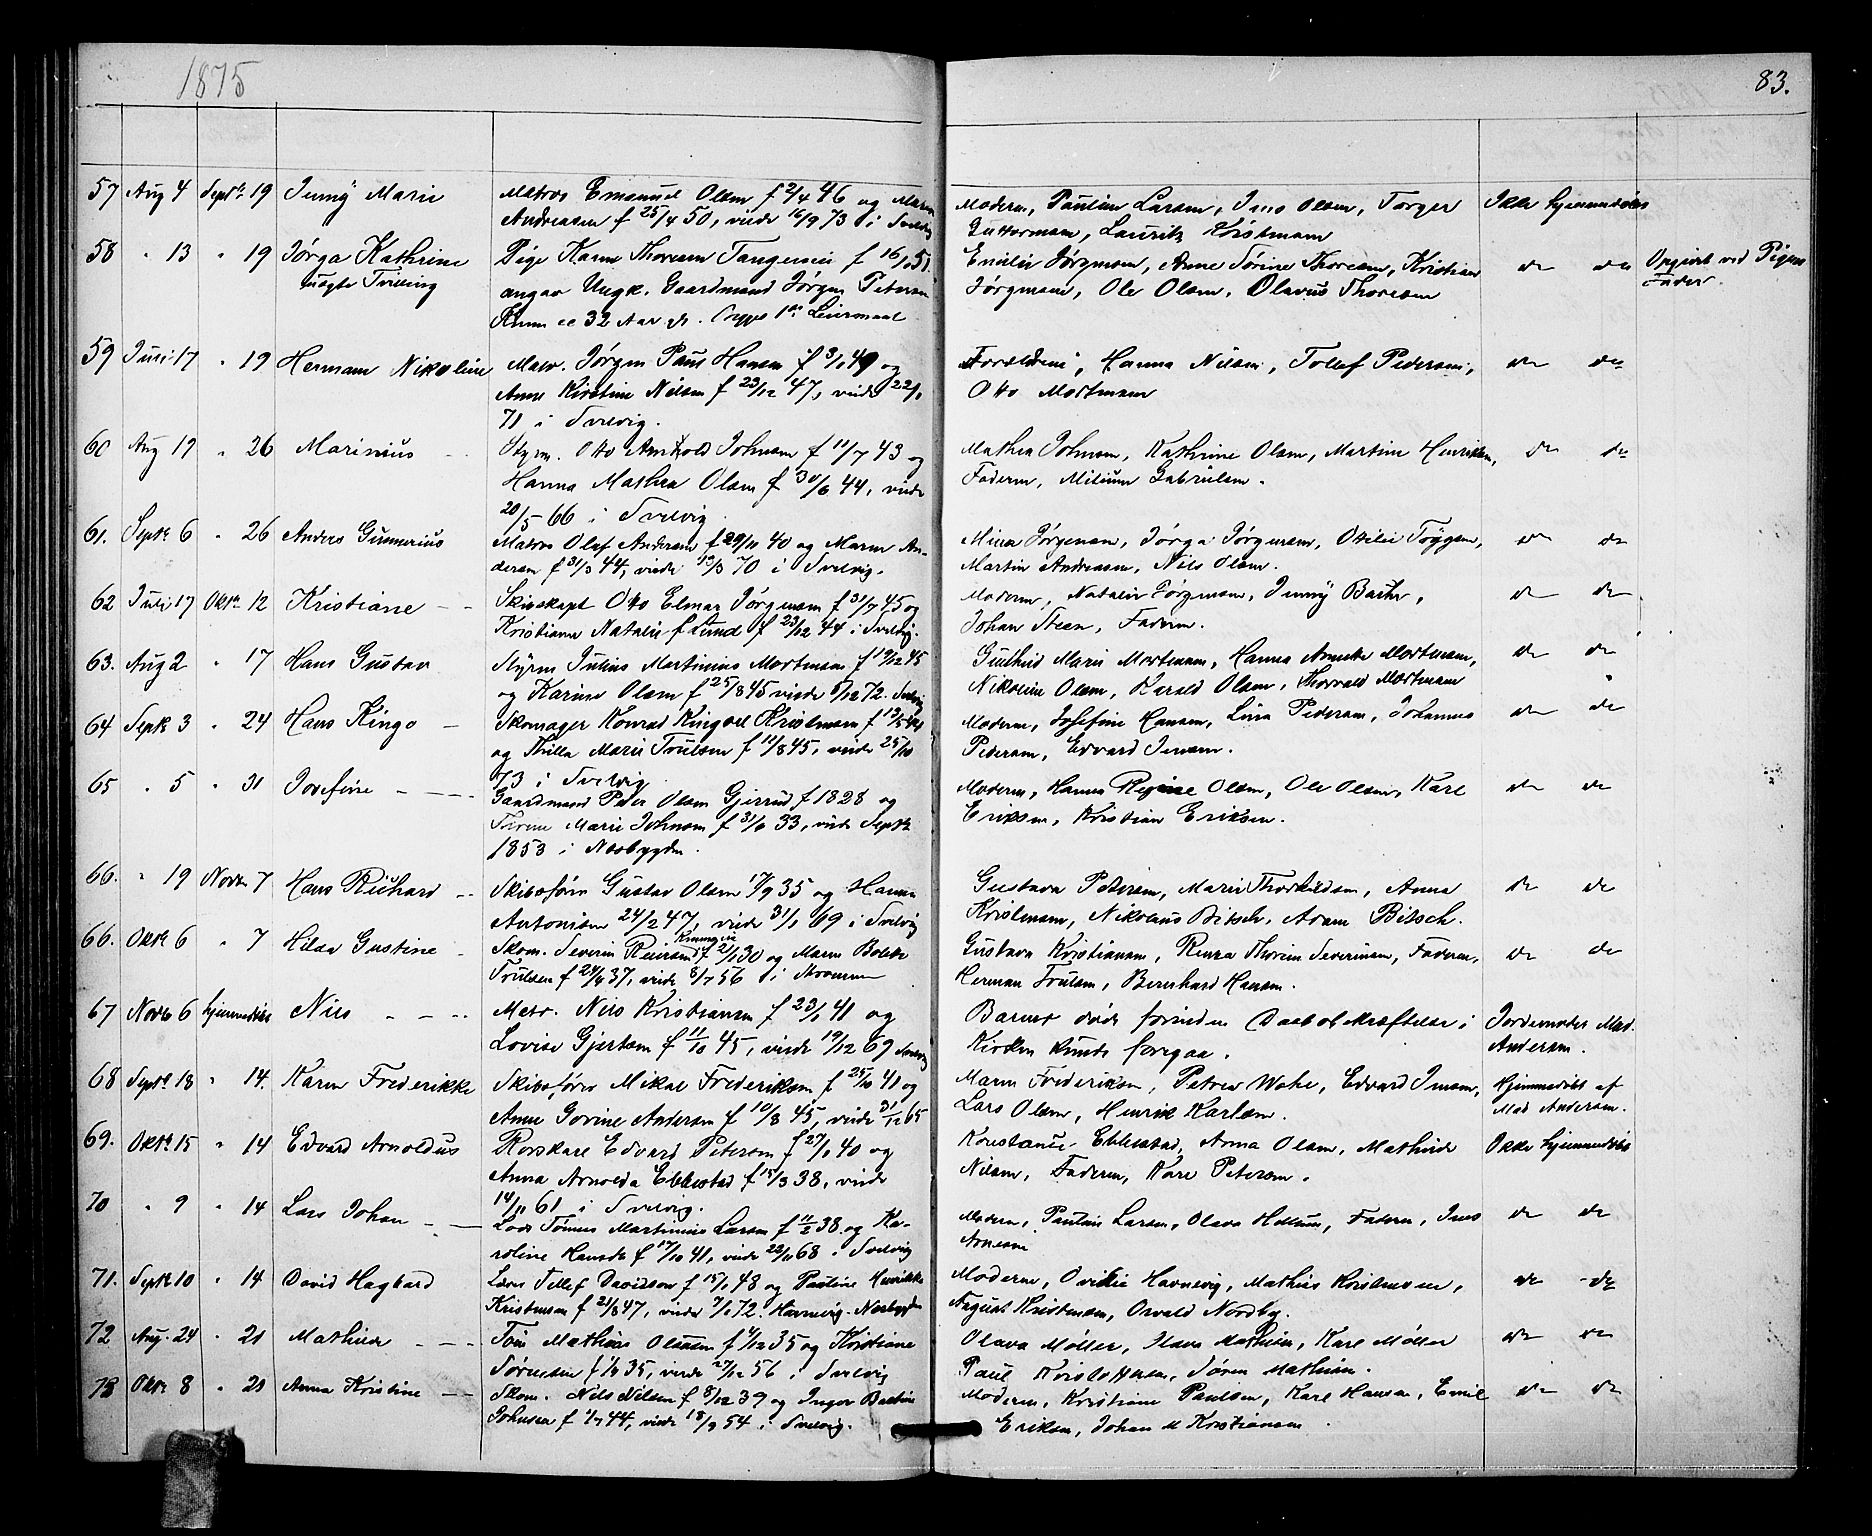 1875
83.
57 Aug 4 Septr 19 Jenny Marie Matros Emanuel Olsen f 2/4 46 og Maren
Andreasen f 25/4 50, viede 16/9 73 i Svelvig
Moderen, Pauline Larsen, Ims Olsen, Torger
Guttormsen, Laurits Kristensen
Ikke hjemmedøbt
58 " 13 " 19 Jørga Kathrine
uægte Tvilling
Pige Karen Thoresen Tangen f 16/10 51
angav Ungk. Gaardmand Jørgen Petersen
32 Aar gl. 1ste Leiermaal
Emilie Jørgensen, Anne Sørine Thoresen, Kristian
Jørgensen, Ole Olsen, Olavus Thoresen
do do
Opgivet ved Pigens
Fader.
59 Juli 17 " 19 Herman Nikoline Matr. Jørgen Paus Hansen f 3/1 49 og
Anne Kirstine Nilsen f 23/12 47, viede 22/1
71 i Svelvig.
Forældrene, Hanna Nilsen, Tollef Pedersen,
Otto Mortensen
do do
60 Aug 19 " 26 Marinius Styrm. Otto Arnhold Johnsen f 11/7 43 og
Hanna Mathea Olsen f 30/6 44, viede
20/5 66 i Svelvig
Mathea Johnsen, Kathrine Olsen, Martine Henriksen,
Faderen, Gabrielsen.
do do
61. Septr 6 " 26 Anders Gunnerius Matros Olaf Andersen f 29/10 40 og Maren An-
dersen f 31/3 44, viede 13/3 70 i Svelvig.
Mina Jørgensen, Jørga Jørgensen, Otilie
Martin Andreasen, Nils Olsen.
do do
62 Juli 17 Oktr 12 Kristiane Skibskapt Otto Elmar Jørgensen f 31/7 45 og
Kristiane Natalie f Lund f 23/12 44 i Svelvig.
Moderen, Natalie Jørgensen, Jenny Bache,
Johan Steen, Faderen.
do do
63. Aug 2 " 17 Hans Gustav Styrm Julius Martinius Mortensen f 19/12 45
og Karine Olsen f 25/8 45 viede 8/12 72. Svelvig
Marie Mortensen, Hanna Annette Mortensen,
Nikoline Olsen, Harald Olsen, Thorvald Mortensen
do do
64 Septr 3 " 24 Hans Kingo Skomager Konrad Kingvel Kristensen f 13/5 44
og Thilla Marie Trulsen f 11/8 45, viede 25/10
73 i Svelvig
Moderen, Josefine Hansen, Lina Pedersen, Johannes
Pedersen, Edvard Jensen.
do do
65 " 5 " 31 Josefine Gaardmand Peder Olsen Gjerrud f 1828 og
Marie Johnsen f 31/6 33, viede Septr
1853 i Næsbygden.
Moderen, Hanna Regine Olsen, Ole Olsen, Karl
Eriksen, Kristian Eriksen.
do do
66. " 19 Novbr 7 Hans Richard Skibsfører Gustav Olsen 17/9 35 og Hanna
Antonisen 24/2 47, viede 31/1 69 i Svelvig
Gustava Petersen, Marie Thorkildsen, Anna
Kristensen, Nikolaus Bitsch, Adam Bitsch.
do do
66. Oktr 6 " 7 Hilda Gustine Skom. Severin Reiersen f 2/1 30 og Maren Bolette
Trulsen f 24/4 37, viede 8/7 56 i Strømmen
Gustava Kristiansen, Renza Thorine Severinsen, Faderen,
Herman Trulsen, Bernhard Hansen.
do do
67 Novbr 6 hjemmedøbt Nils Matr. Nils Kristiansen f 23/1 41 og
Lovise Gjertsen f 11/10 45, viede 19/12 69 Svelvig
Barnet døde forinden Daabsbekræftelse i
Kirken kunde foregaa.
Jordemoder Mad.
Andersen.
68 Septr 18 " 14. Karen Frederikke Skibsfører Mikal Frederiksen f 25/10 41 og
Anne Gorine Andersen f 10/8 45, viede 31/12 65
Maren Frederiksen, Petrea Wahl, Edvard Jensen,
Lars Olsen, Henrik Karlsen.
Hjemmedøbt af
Mad Andersen.
69. Oktr 15 " 14 Edvard Arnoldus Rorskarl Edvard Petersen f 27/1 40 og
Anna Arnolda Ebbestad f 15/3 38, viede
14/11 61 i Svelvig.
Konstance Ebbestad, Anna Olsen, Mathilde
Nilsen, Faderen, Karl Petersen.
Ikke hjemmedøbt
70 " 9 " 14 Lars Johan Lods Tønnes Martinius Larsen f 11/2 38 og Ka-
roline Hansdr f 17/10 41, viede 22/11 68 i Svelvig
Moderen, Pauline Larsen, Olava Hellum, Faderen, Jens
Arnesen
do do
71. Septr 10 " 14 David Hagbard Tellef Davidsen f 15/1 48 og Pauline Henrikke
Kristensen f 21/8 47, viede 7/1 72. Havnevig. Næsbygden
Moderen, Ovidie Havnevig, Mathias Kristensen,
August Kristensen, Osvald Nordby.
do do
72 Aug. 24 " 21 Mathilde Mathias Olausen f 4/12 35 og Kristiane
Sørensen f 1/9 35, viede 27/12 56 i Svelvig
Olava Møller, Olava Mathisen, Karl Møller
Paul Kristoffersen, Søren Mathisen.
do do
73 Oktr 8 " 21 Anna Kristine Skom. Nils Nilsen f 8/12 39 og Inger Bastine
Johnsen f 1/7 44, viede 18/3 54 i Svelvig.
Moderen, Kristiane Paulsen, Karl Hansen, Emil
Eriksen, Johan M Kristiansen
do do